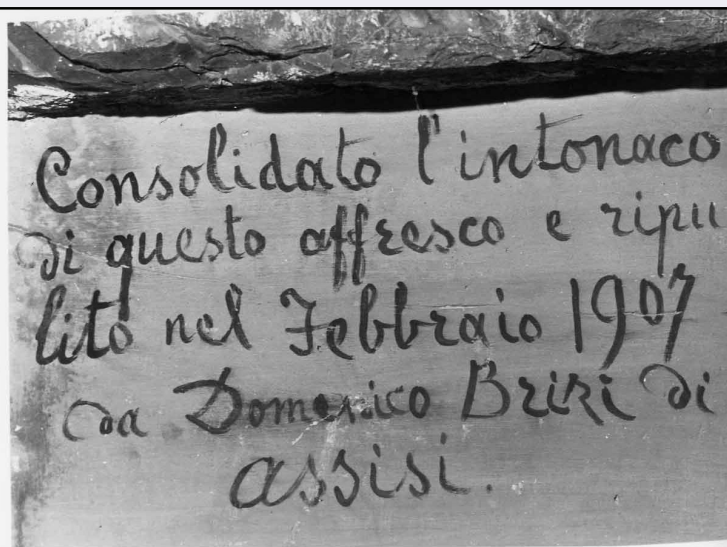 Consolidato l'intonaco
di questo affresco e ripu
lito nel Febbraio 1907
da Domenico Brizi di
assisi.